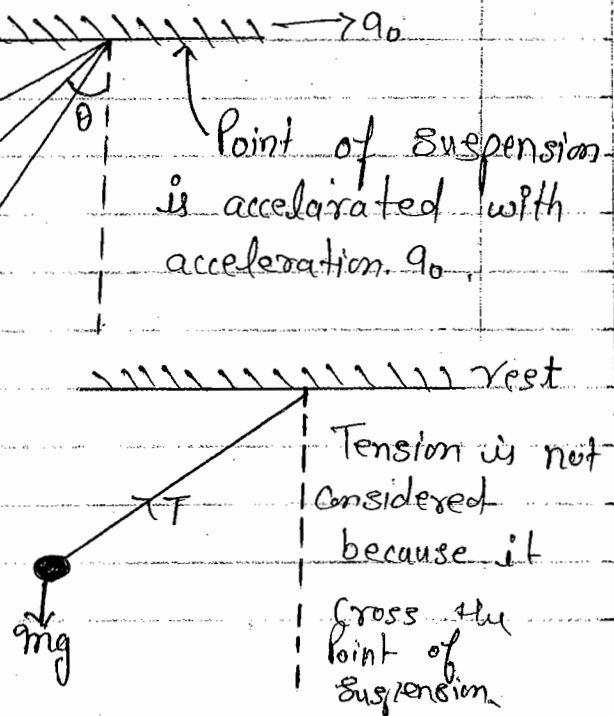 → a₀
θ
Point of suspension
is accelarated with
acceleration. a₀.
rest
Tension is not
Considered
because it
Cross the
Point of
Suspension.
T
mg